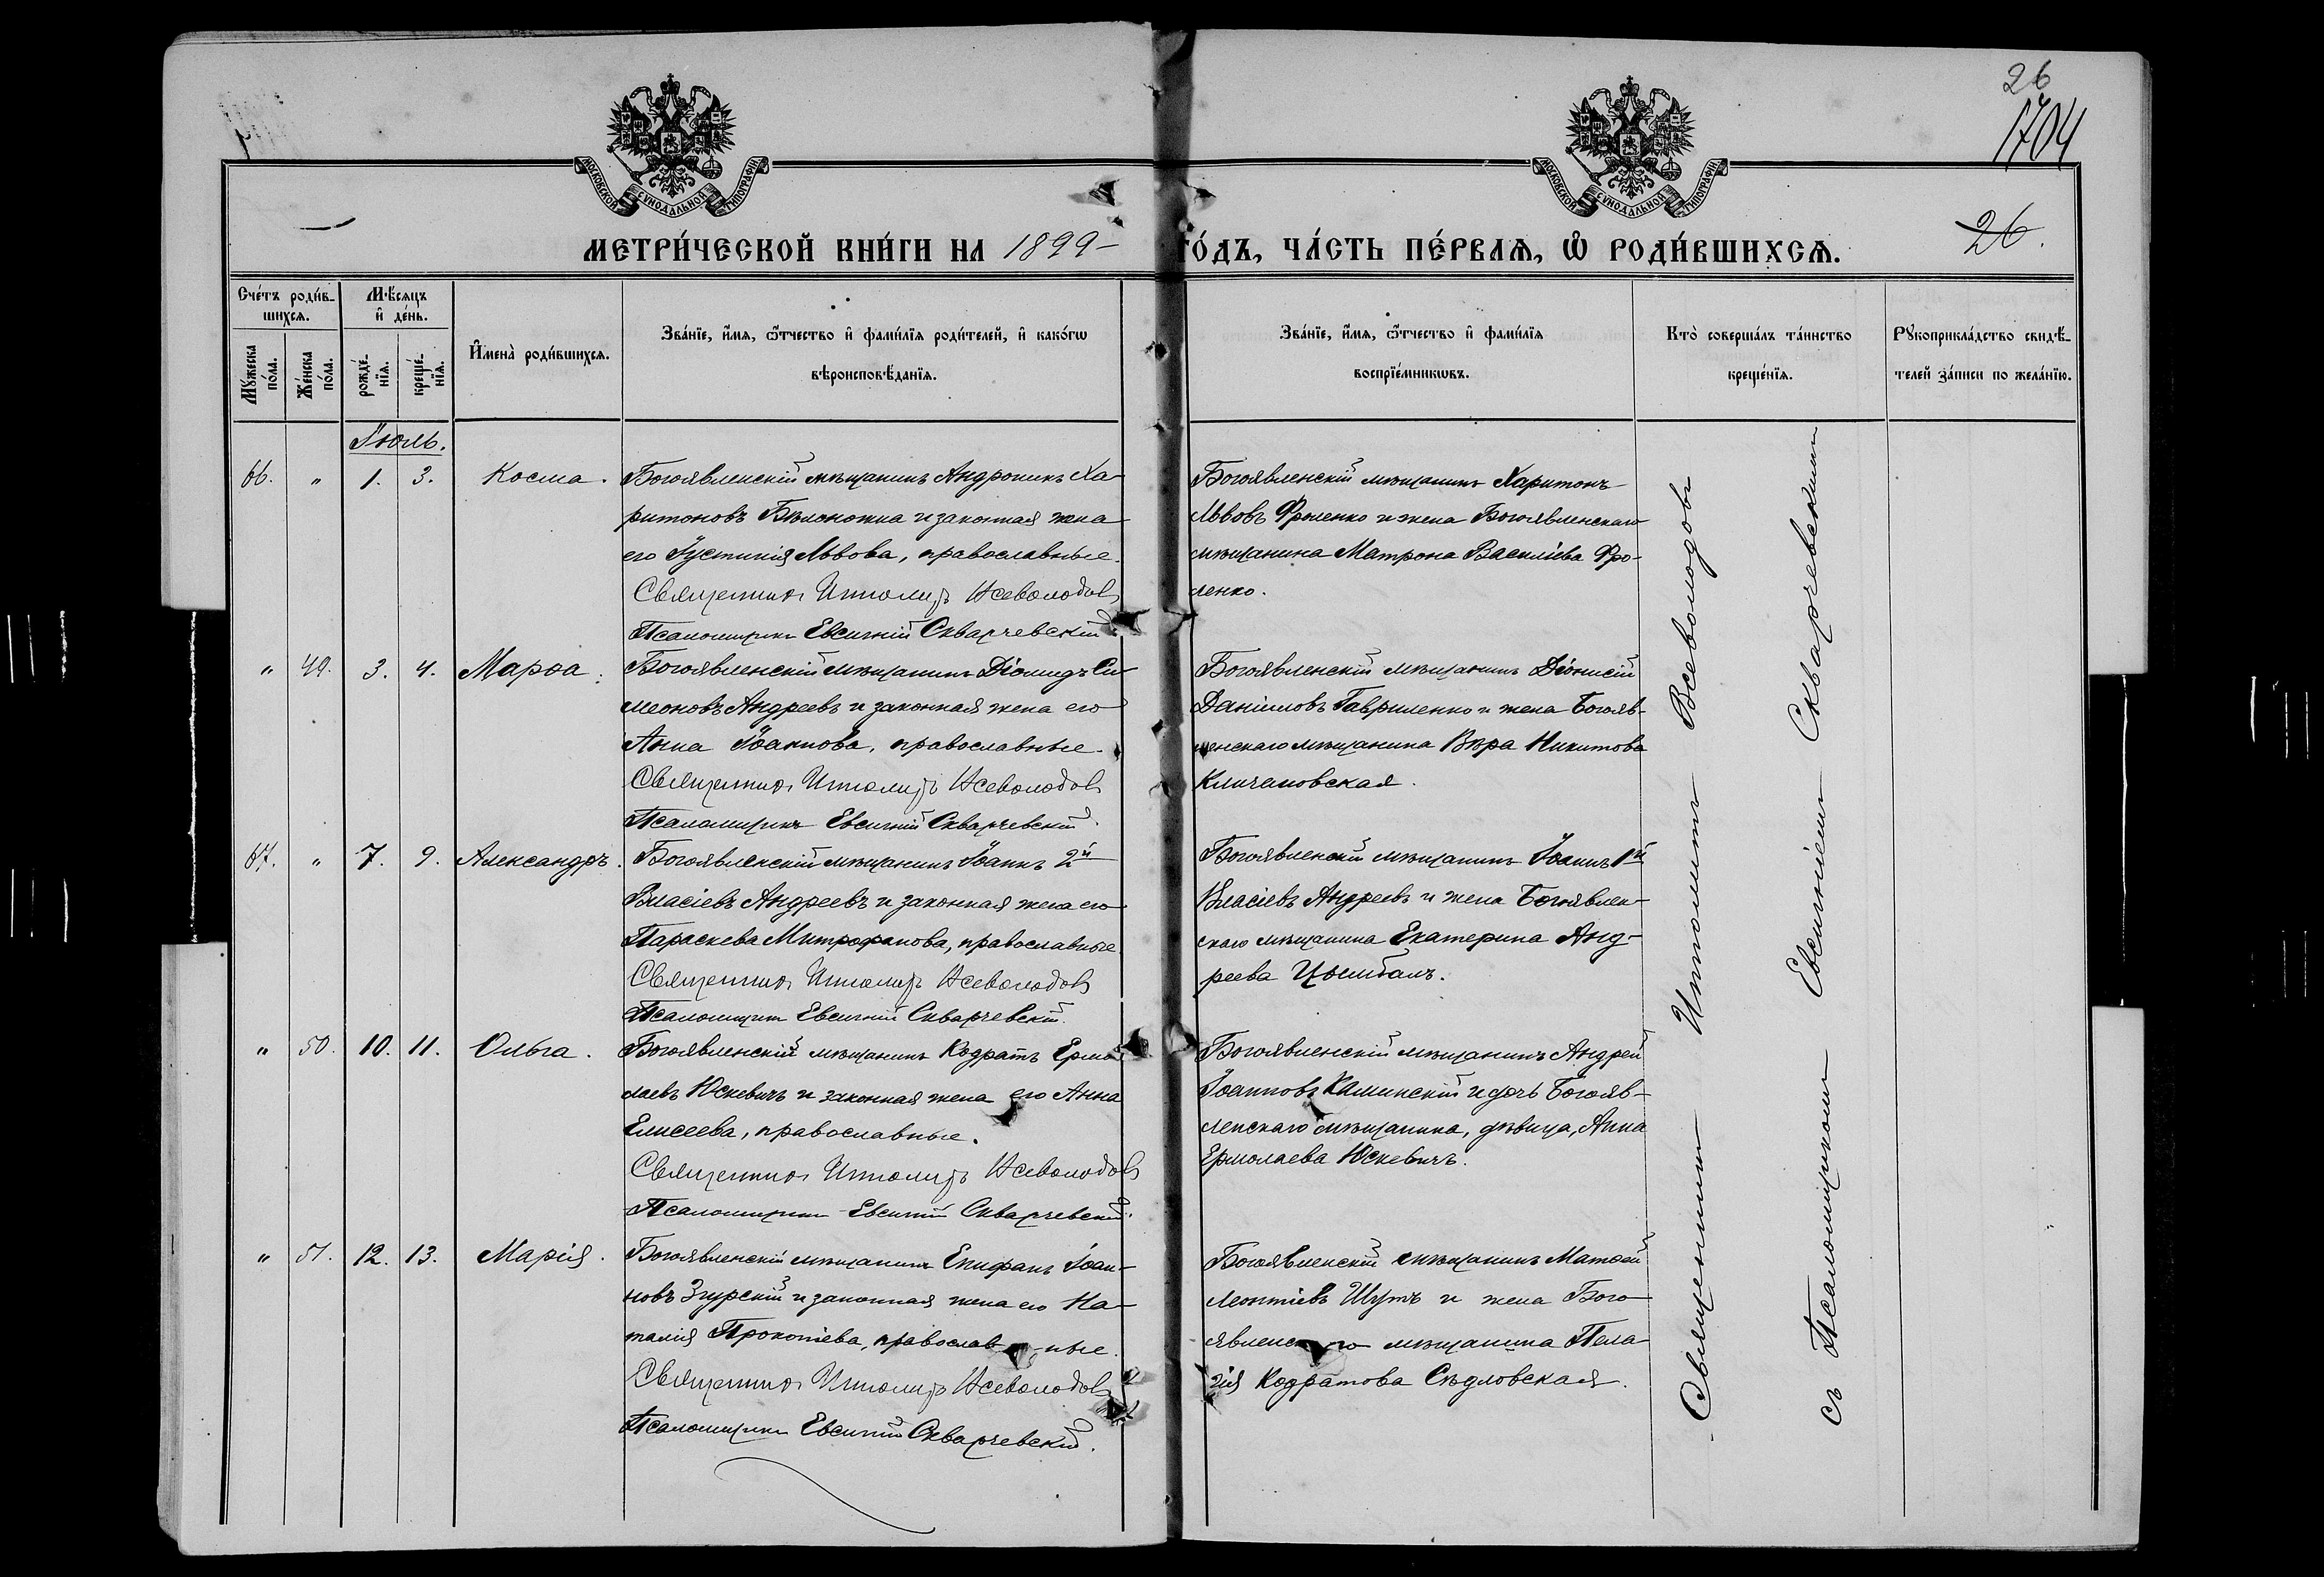 26
1704
МОСКОВСКОЙ СѴНОДАЛЬНОЙ ТИПОГРАФІИ
МОСКОВСКОЙ СѴНОДАЛЬНОЙ ТИПОГРАФІИ
МЕТРИ́ЧЕСКОЙ КНИ́ГИ НА 1899 ГО́ДЪ, ЧА́СТЬ ПЕ́РВАѦ, Ѡ РОДИ́ВШИХСѦ.
26.
Сче́тъ роди́в-
шихсѧ.
Мꙋ́жеска по́ла.
Же́нска по́ла.
Мѣ́сѧцъ
и҆ де́нь.
рожде́-
нїѧ.
креще́-
нїѧ.
И҆мена̀ роди́вшихсѧ.
Зва́нїе, и҆́мѧ, ѻ҆́тчество и҆ фами́лїѧ роди́телей, и҆ како́гѡ
вѣроисповѣ́данїѧ.
Зва́нїе, и҆́мѧ, ѻ҆́тчество и҆ фами́лїѧ
воспрїе́мникѡвъ.
Кто̀ соверша́лъ та́инство
креще́нїѧ.
Рꙋкоприкла́дство свидѣ́-
телей за́писи по жела́нїю.
Іюль.
66. " 1. 3. Косма.
Богоявленскій мѣщанинъ Андроникъ Ха-
ритоновъ Бѣлоножка и законная жена
его Іустинія Львова, православные.
Священникъ Ипполитъ Всеволодовъ
Псаломщикъ Евсигній Скварчевскій.
Богоявленскій мѣщанинъ Харитонъ
Львовъ Фроленко и жена Богоявленскаго
мѣщанина Матрона Василіева Фро-
ленко.
" 49. 3. 4. Марѳа.
Богоявленскій мѣщанинъ Діомидъ Си-
меоновъ Андреевъ и законная жена его
Анна Іоаннова, православные.
Священникъ Ипполитъ Всеволодовъ
Псаломщикъ Евсигній Скварчевскій.
Богоявленскій мѣщанинъ Діонисій
Даніиловъ Гавриленко и жена Богояв-
ленскаго мѣщанина Вѣра Никитова
Кличановская.
67. " 7. 9. Александръ.
Богоявленскій мѣщанинъ Іоаннъ 2й
Власіевъ Андреевъ и законная жена его
Параскева Митрофанова, православные
Священникъ Ипполитъ Всеволодовъ
Псаломщикъ Евсигній Скварчевскій.
Богоявленскій мѣщанинъ Іоаннъ 1й
Власіевъ Андреевъ и жена Богоявлен-
скаго мѣщанина Екатерина Анд-
реева Цымбалъ.
" 50. 10. 11. Ольга.
Богоявленскій мѣщанинъ Кодратъ Ермо-
лаевъ Юскевичъ и законная жена его Анна
Елисеева, православные.
Священникъ Ипполитъ Всеволодовъ
Псаломщикъ Евсигній Скварчевскій.
Богоявленскій мѣщанинъ Андрей
Іоанновъ Калинскій и дочь Богояв-
ленскаго мѣщанина, дѣвица, Анна
Ермолаева Юскевичъ.
" 51. 12. 13. Марія.
Богоявленскій мѣщанинъ Епифанъ Іоан-
новъ Згурскій и законная жена его На-
талія Прокопіева, православ-ные.
Священникъ Ипполитъ Всеволодовъ
Псаломщикъ Евсигній Скварчевскій.
Богоявленскій мѣщанинъ Матѳей
Леонтіевъ Шутъ и жена Бого-
явленскаго мѣщанина Пела-
гія Кодратова Сѣдловская.
Священникъ Ипполитъ Всеволодовъ
съ Псаломщикомъ Евсигніемъ Скварчевскимъ